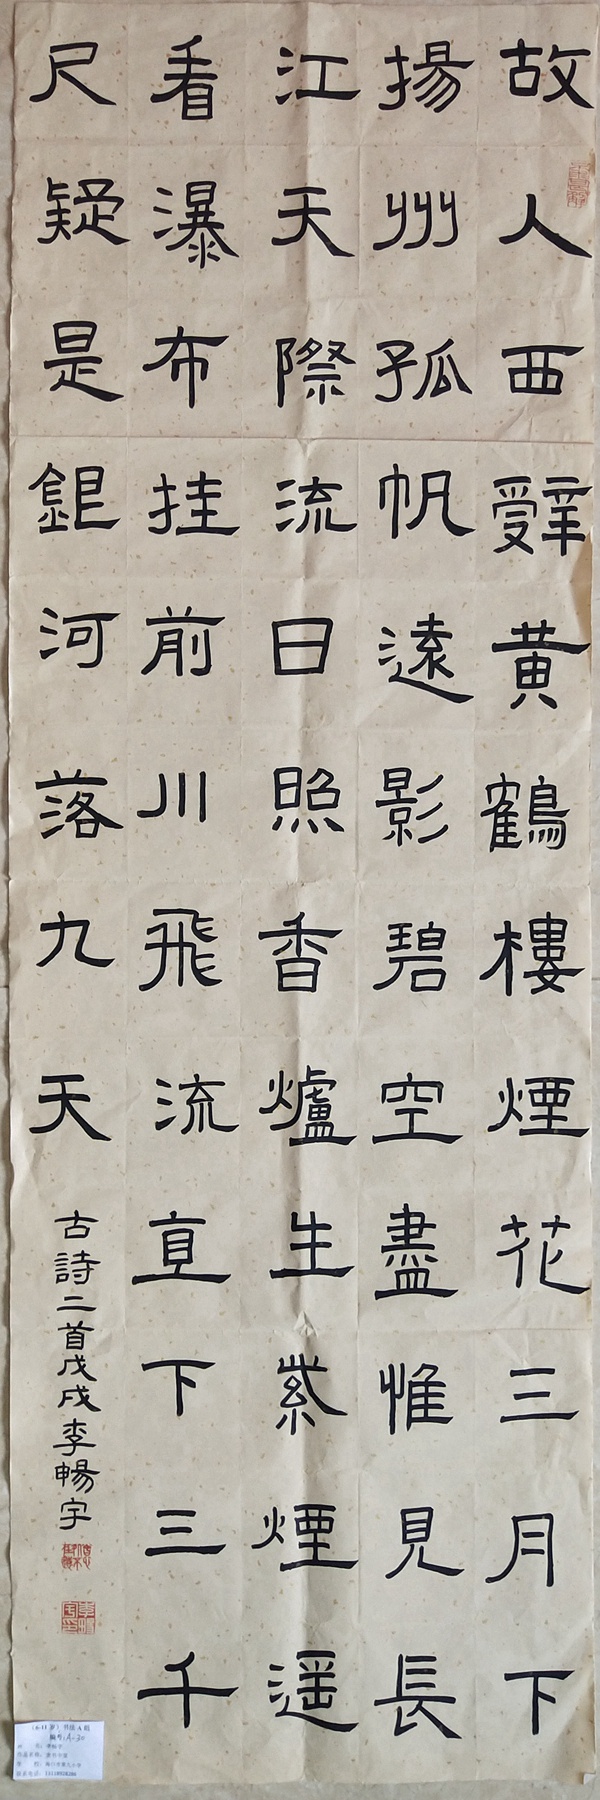 故人西辭黄鶴樓煙花三月下
揚州孤帆遠影碧空盡惟見長
江天際流日照香爐生紫煙遥
看瀑布挂前川飛流直下三千
尺疑是銀河落九天
古詩二首戊戌李暢宇
（6-11岁）书法A组